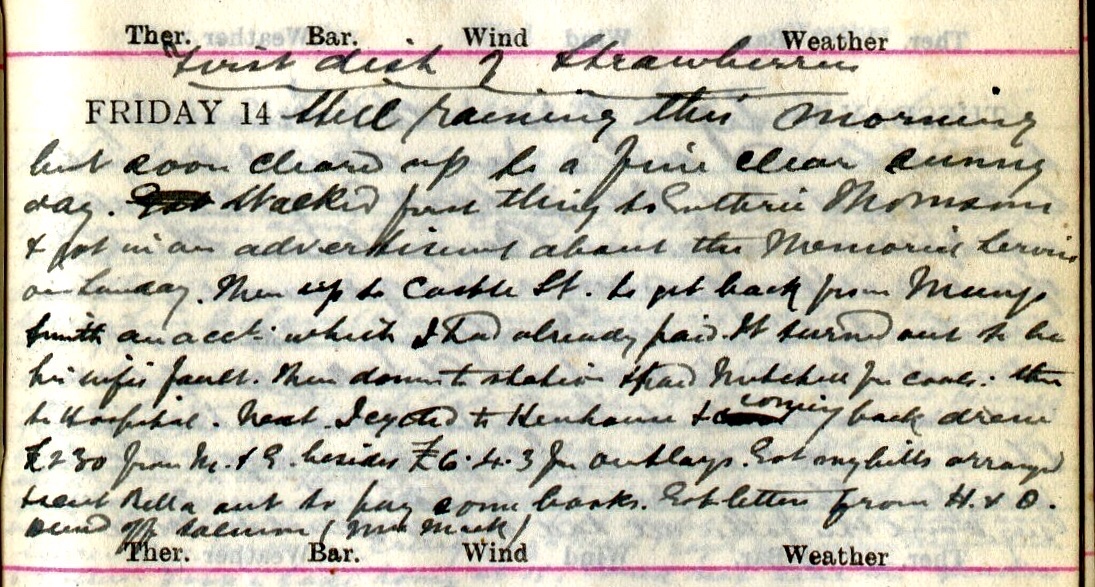 Ther. Bar. Wind Weather
First dish of Strawberries
FRIDAY 14 Still raining this morning
but soon cleard up to a fine clear sunny
day. Walked first thing to Guthrie Thomson
& got in an advertisment about the Memorial Service
on Sunday. Then up to Castle St. to get back from Mungo
Smith an acct. which I had already paid. It turned out to be
his wifes fault. Then down to station & paid Mitchell for coals: then
to Hospital. Next I cycled to Henhouse & coming back drew
£230 from M. & E. besides £6.4.3 for outlays. Got my bills arranged
& sent Bella out to pay some books. Got letters from H. & O.
Dined off salmon (Mrs Mack)
Ther. Bar. Wind Weather